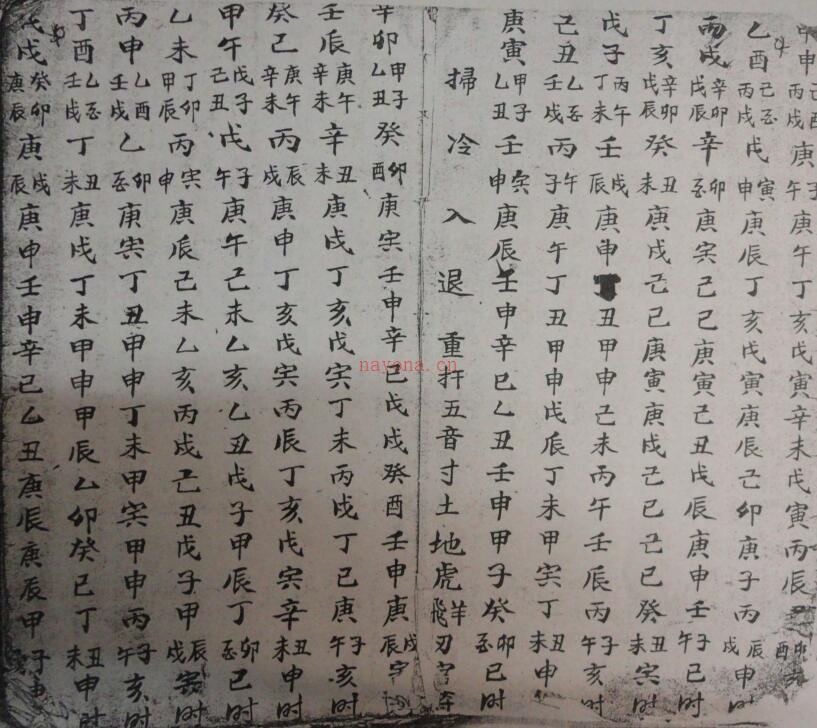 甲申 丙戌 己酉 庚 午子 庚午丁亥戊寅辛未戊寅丙辰
乙酉 丙戌 己丑 戊 申寅 庚辰丁亥戊寅庚辰己卯庚子丙 戌辰 申时
丙戌 戊辰 辛卯 辛 丑卯 庚寅己巳庚寅己丑戊辰庚申壬 午子 巳时
丁亥 戊辰 辛卯 癸 未丑 庚戌己巳庚寅庚戌己巳己巳癸 未丑 寅时
戊子 丁未 丙午 壬 辰戌 庚申丁丑甲申己未丙午壬辰丙 午子 亥时
己丑 壬戌 乙丑 丙 子午 庚午丁丑甲申戊辰丁未甲寅丁 未丑 申
庚寅 乙丑 甲子 壬 申寅 庚辰壬申辛巳乙丑壬申甲子癸 丑卯 巳时
掃冷入退重扦五音寸土地虎 飛羊 刃
辛卯 乙丑 甲子 癸 酉卯 庚寅壬申辛巳戊戌癸酉壬申庚 辰戌
壬辰 辛未 庚午 辛 未丑 庚戌丁亥戊寅丁未丙戌丁巳庚 午子 亥时
癸巳 辛未 庚午 丙 戌辰 庚申丁亥戊寅丙辰丁亥戊寅辛 未丑 申时
甲午 己丑 戊子 戊 午子 庚午己未乙亥乙丑戊子甲辰丁 丑卯 巳时
乙未 甲辰 丁卯 丙 申寅 庚辰己未乙亥丙戌己丑戊子甲 戌辰 寅时
丙申 壬戌 乙酉 乙 丑卯 庚寅丁丑甲申丁未甲寅甲申丙 午子 亥时
丁酉 壬戌 乙丑 丁 未丑 庚戌丁未甲申甲辰乙卯癸巳丁 未丑 申时
戊戌 庚辰 癸卯 庚 辰戌 庚申壬申辛巳乙丑庚辰庚辰甲